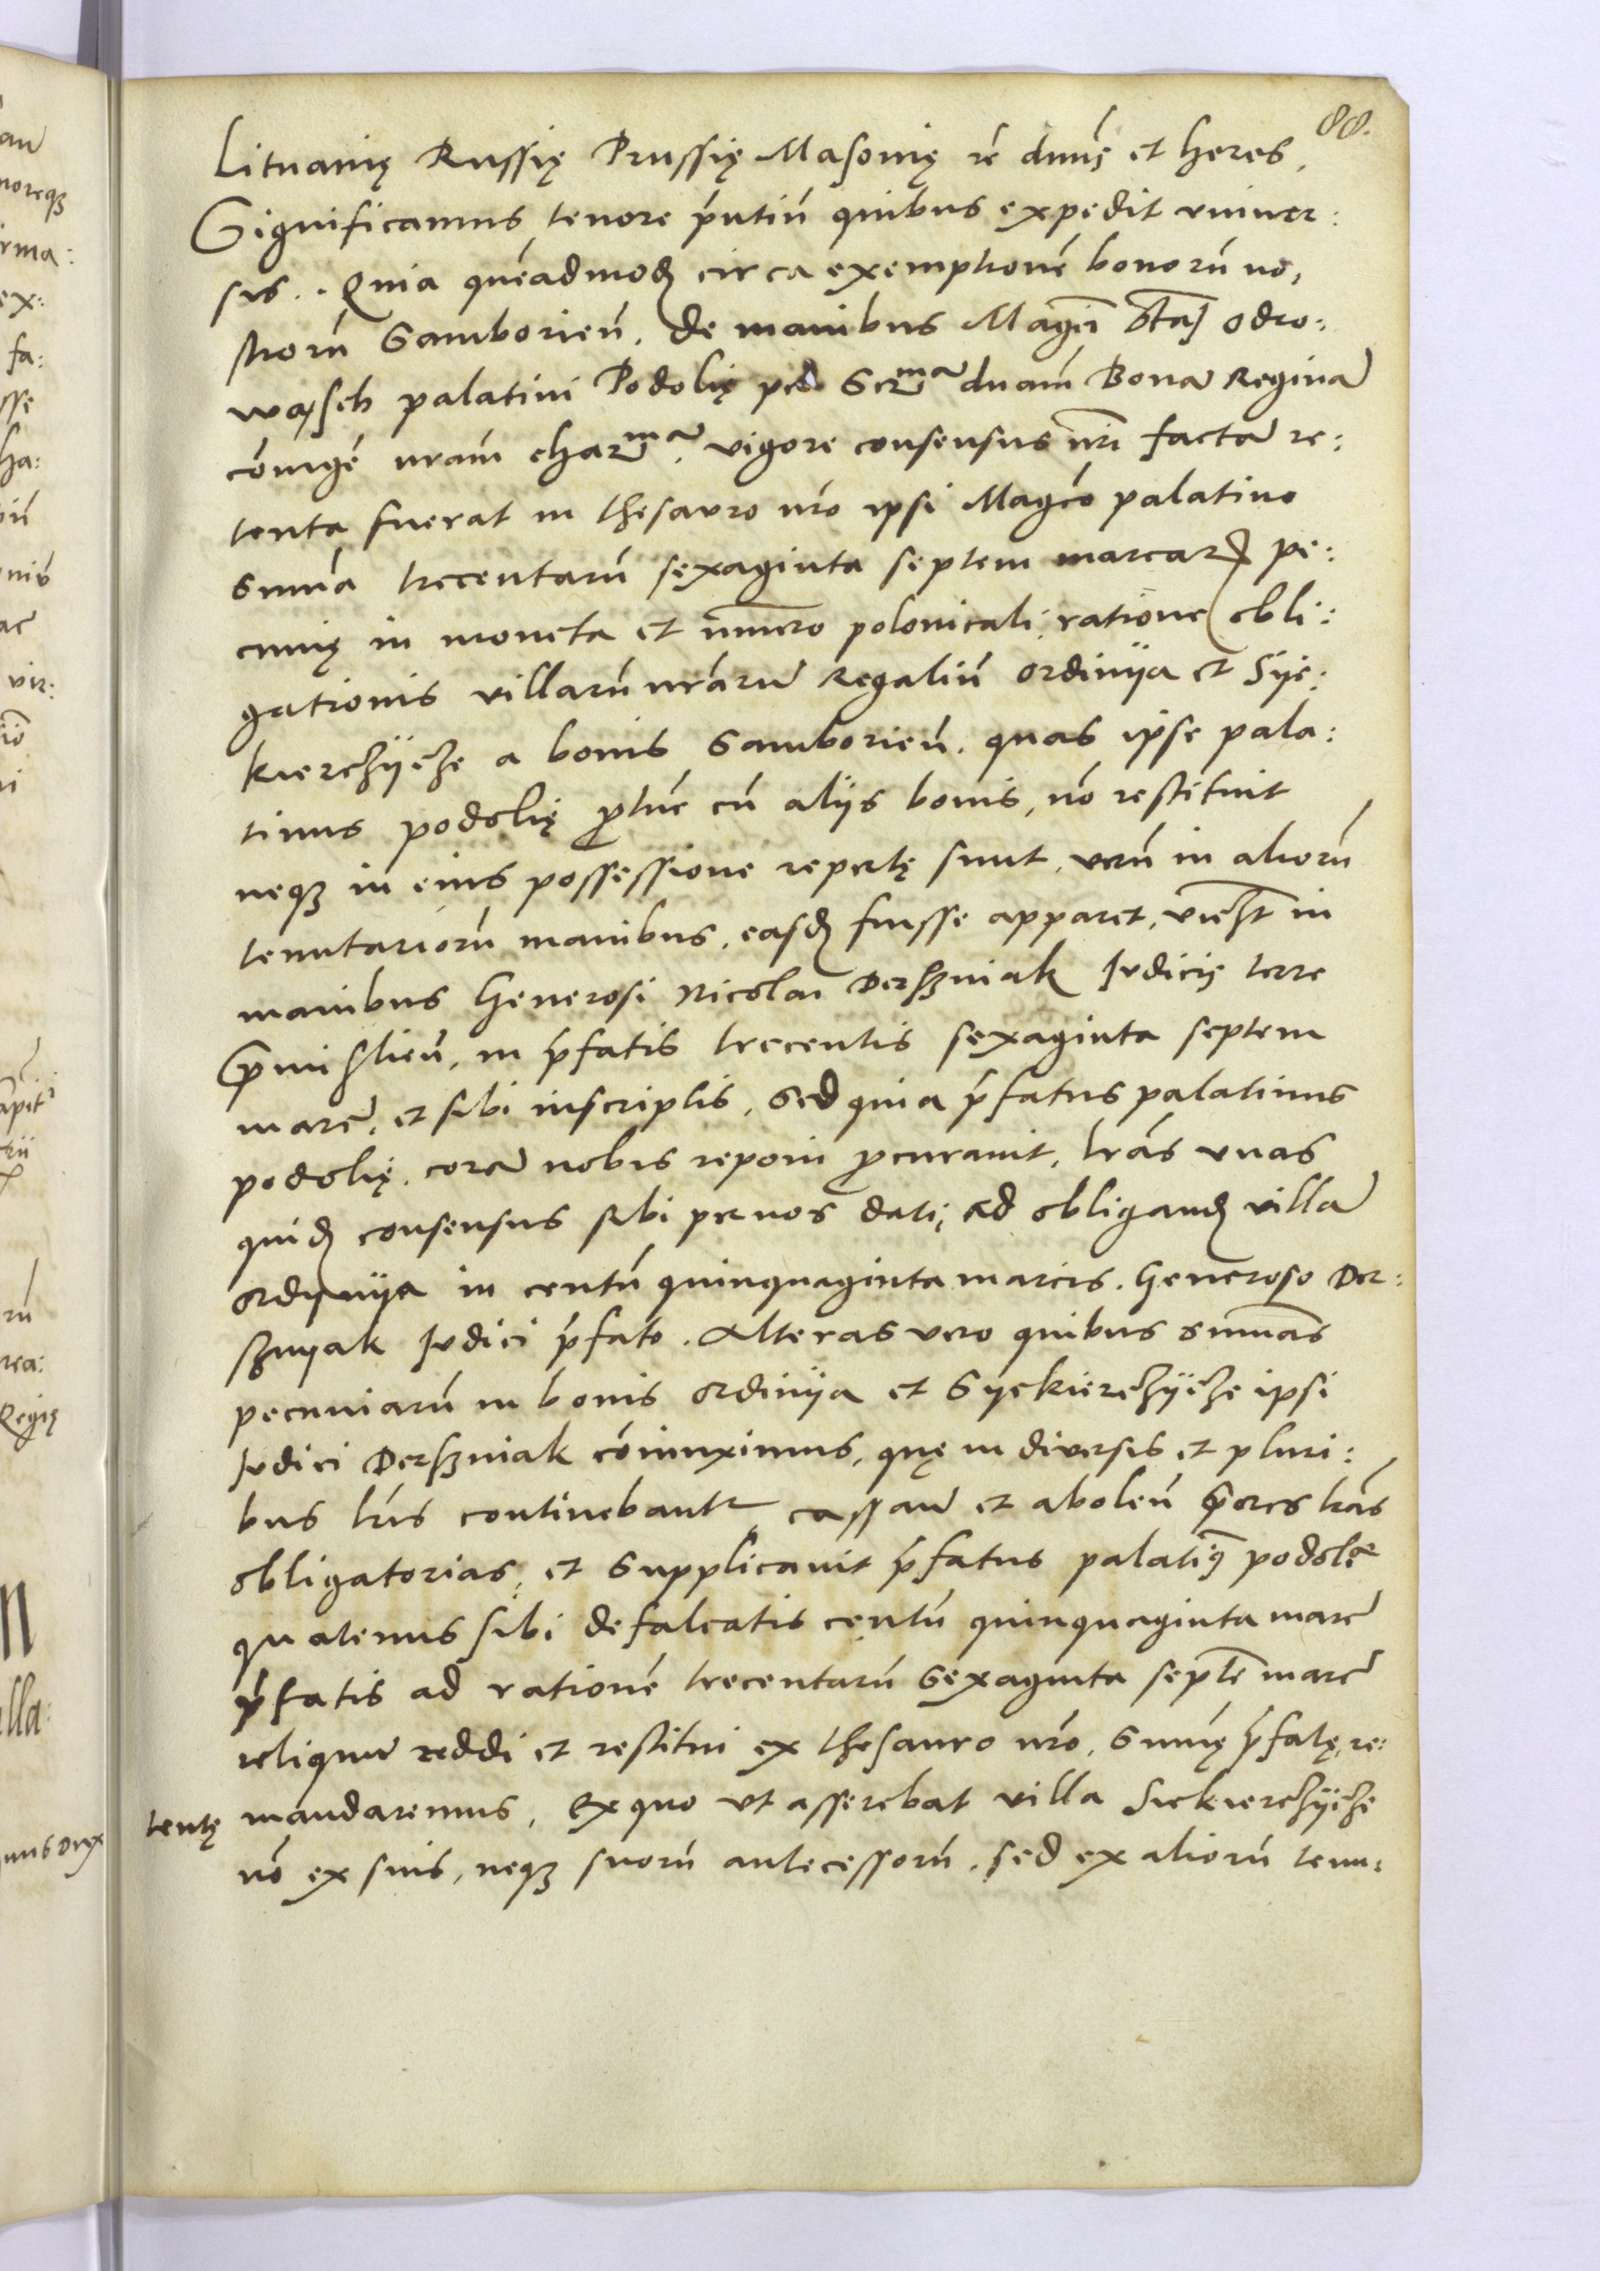 88.
Lituanię Russię Prussię Masovię rē dnūs et heres.
Significamus tenore pñtiū quibus expedit vniuer:
sis.. Quia quēadmodȝ circa exemptionē bonorū no,
strorū Samborień. de manibus Magci Odro:
wąsch palatini Podolię per Serma dnam Bonā Reginā
cōiugē nrām charma. vigore consensus nri factā re:
tenta fuerat in thesauro nrō ipsi Magco palatino
summa trecentarū sexaginta septem marcarȝ pe:
cunię in moneta et nūmero polonicali ratione obli:
gationis villarū nrārum Regaliū Ordinÿa et Sye:
kierchÿche a bonis Samborień. quas ipse pala:
tinus podolię ptūc cū alÿs bonis, nō restituit
neqȝ in eius possessione repertę sunt, verū in aliorū
tenutariorū manibus, easdȝ fuisse apparet, videlt in
manibus Generosi Nicolai Derszniak Iudicis terre
Premislień. in prfatis trecentis sexaginta septem
marc. et sibi inscriptis, Sed quia prfatus palatinus
podolię. corā nobis reponi procurauit, lrās vnas
quidȝ consensus sibi per nos dati, ad obligandȝ villā
ordÿnÿa in centū quinquaginta marcis. Generoso Der:
sznyak Iudici prfato. Alteras vero quibus summas
pecuniarū in bonis ordinÿa et Syekierchÿche ipsi
Iudici Derszniak cōiunximus, quę in diuersis et pluri:
bus lris continebantr cassań et aboleń priores lrās
obligatorias, et Supplicauit prfatus palatinȝ podolię
quatenus sibi defalcatis centū quinquaginta marc
prfatis ad rationē trecentarū Sexaginta septē marc
reliquū reddi et restitui ex thesauro nrō. Summę prfatę, re:
tentę mandaremus, Ex quo vt asserebat villa Siekierchÿche
nō ex suis, neqȝ suorū antecessorū. sed ex aliorū tenu: